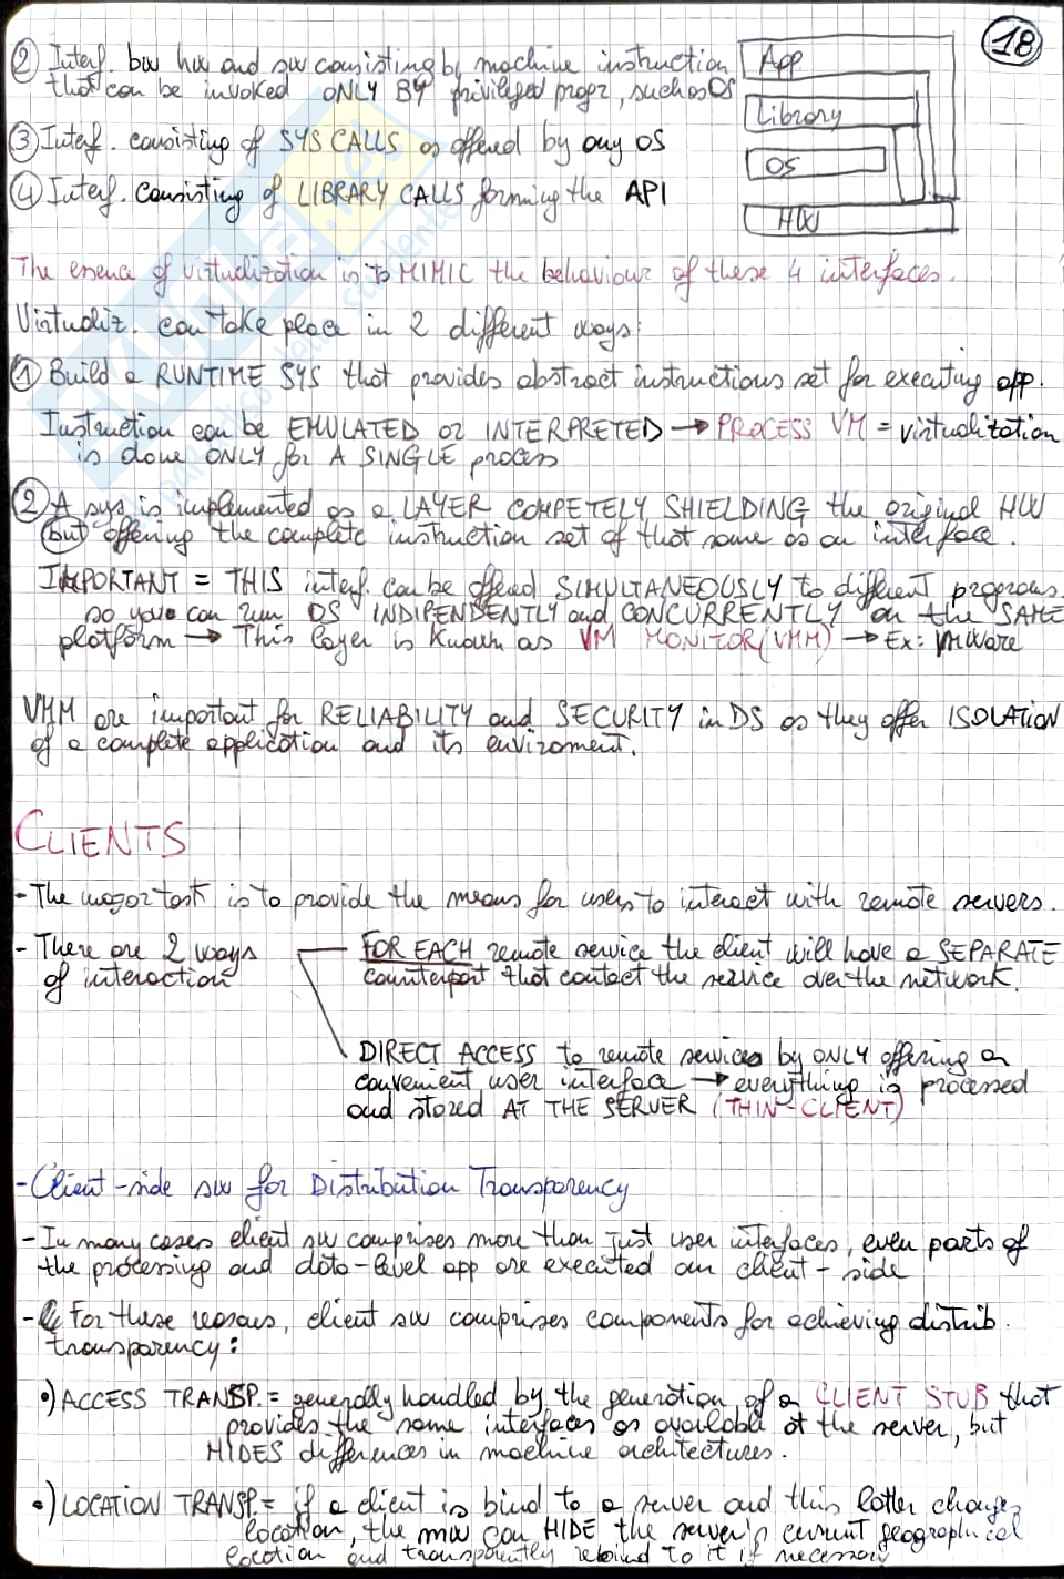 18
② Interf. bw hw and sw consisting by machine instruction
that can be invoked ONLY BY privileged progr, such as OS
③ Interf. consisting of SYS CALLS as offered by any OS
④ Interf. consisting of LIBRARY CALLS forming the API
App
Library
OS
HW
The essence of virtualization is to MIMIC the behaviour of these 4 interfaces.
Virtualiz. can take place in 2 different ways:
① Build a RUNTIME SYS that provides abstract instructions set for executing app.
Instruction can be EMULATED or INTERPRETED → PROCESS VM = virtualization
is done ONLY for A SINGLE process
② A sys is implemented as a LAYER COMPETELY SHIELDING the original HW
but offering the complete instruction set of that same as an interface.
IMPORTANT = THIS interf. can be offered SIMULTANEOUSLY to different programs.
so you can run OS INDIPENDENTLY and CONCURRENTLY on the SAME
platform → This layer is known as VM MONITOR (VMM) → Ex: VMWare
VMM are important for RELIABILITY and SECURITY in DS as they offer ISOLATION
of a complete application and its enviroment.
CLIENTS
- The major task is to provide the means for users to interact with remote servers.
- There are 2 ways
of interaction
FOR EACH remote service the client will have a SEPARATE
counterpart that contact the service over the network.
DIRECT ACCESS to remote services by ONLY offering a
convenient user interface → everything is processed
and stored AT THE SERVER (THIN-CLIENT)
- Client-side sw for Distribution Transparency
- In many cases client sw comprises more than just user interfaces, even parts of
the processing and data-level app are executed on client-side
- For these reasons, client sw comprises components for achieving distrib.
transparency:
•) ACCESS TRANSP. = generally handled by the generation of a CLIENT STUB that
provides the same interfaces as available at the server, but
HIDES differences in machine architectures.
•) LOCATION TRANSP. = if a client is bind to a server and this latter changes
location, the mw can HIDE the server's current geographical
location and transparently rebind to it if necessary